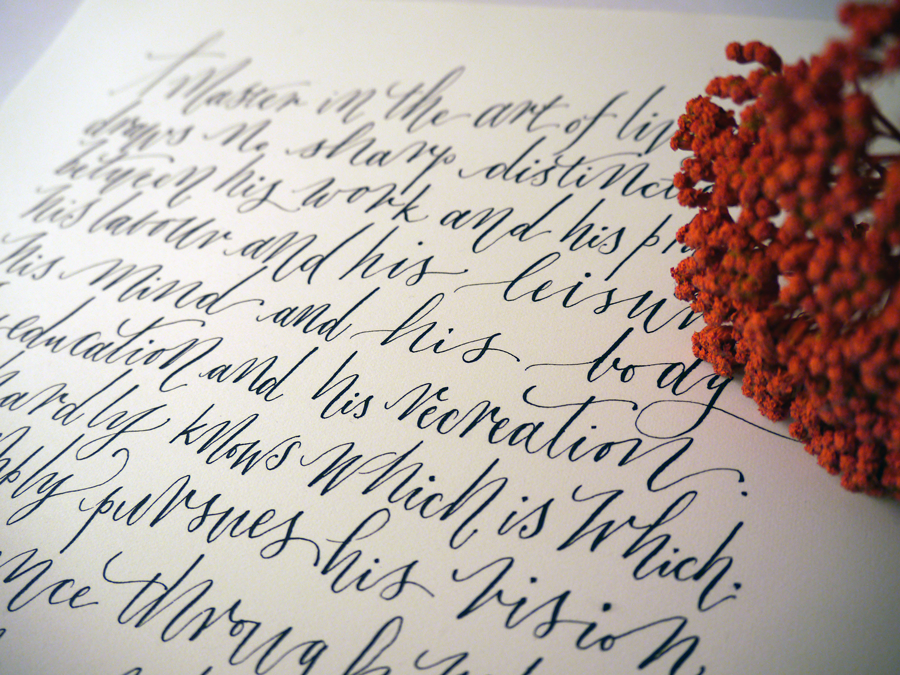 A Master in the art of liv
draws no sharp distinct
between his work and his pl
his labour and his leisur
his mind and his body
education and his recreation.
hardly knows which is which.
mply pursues his vision
ence through